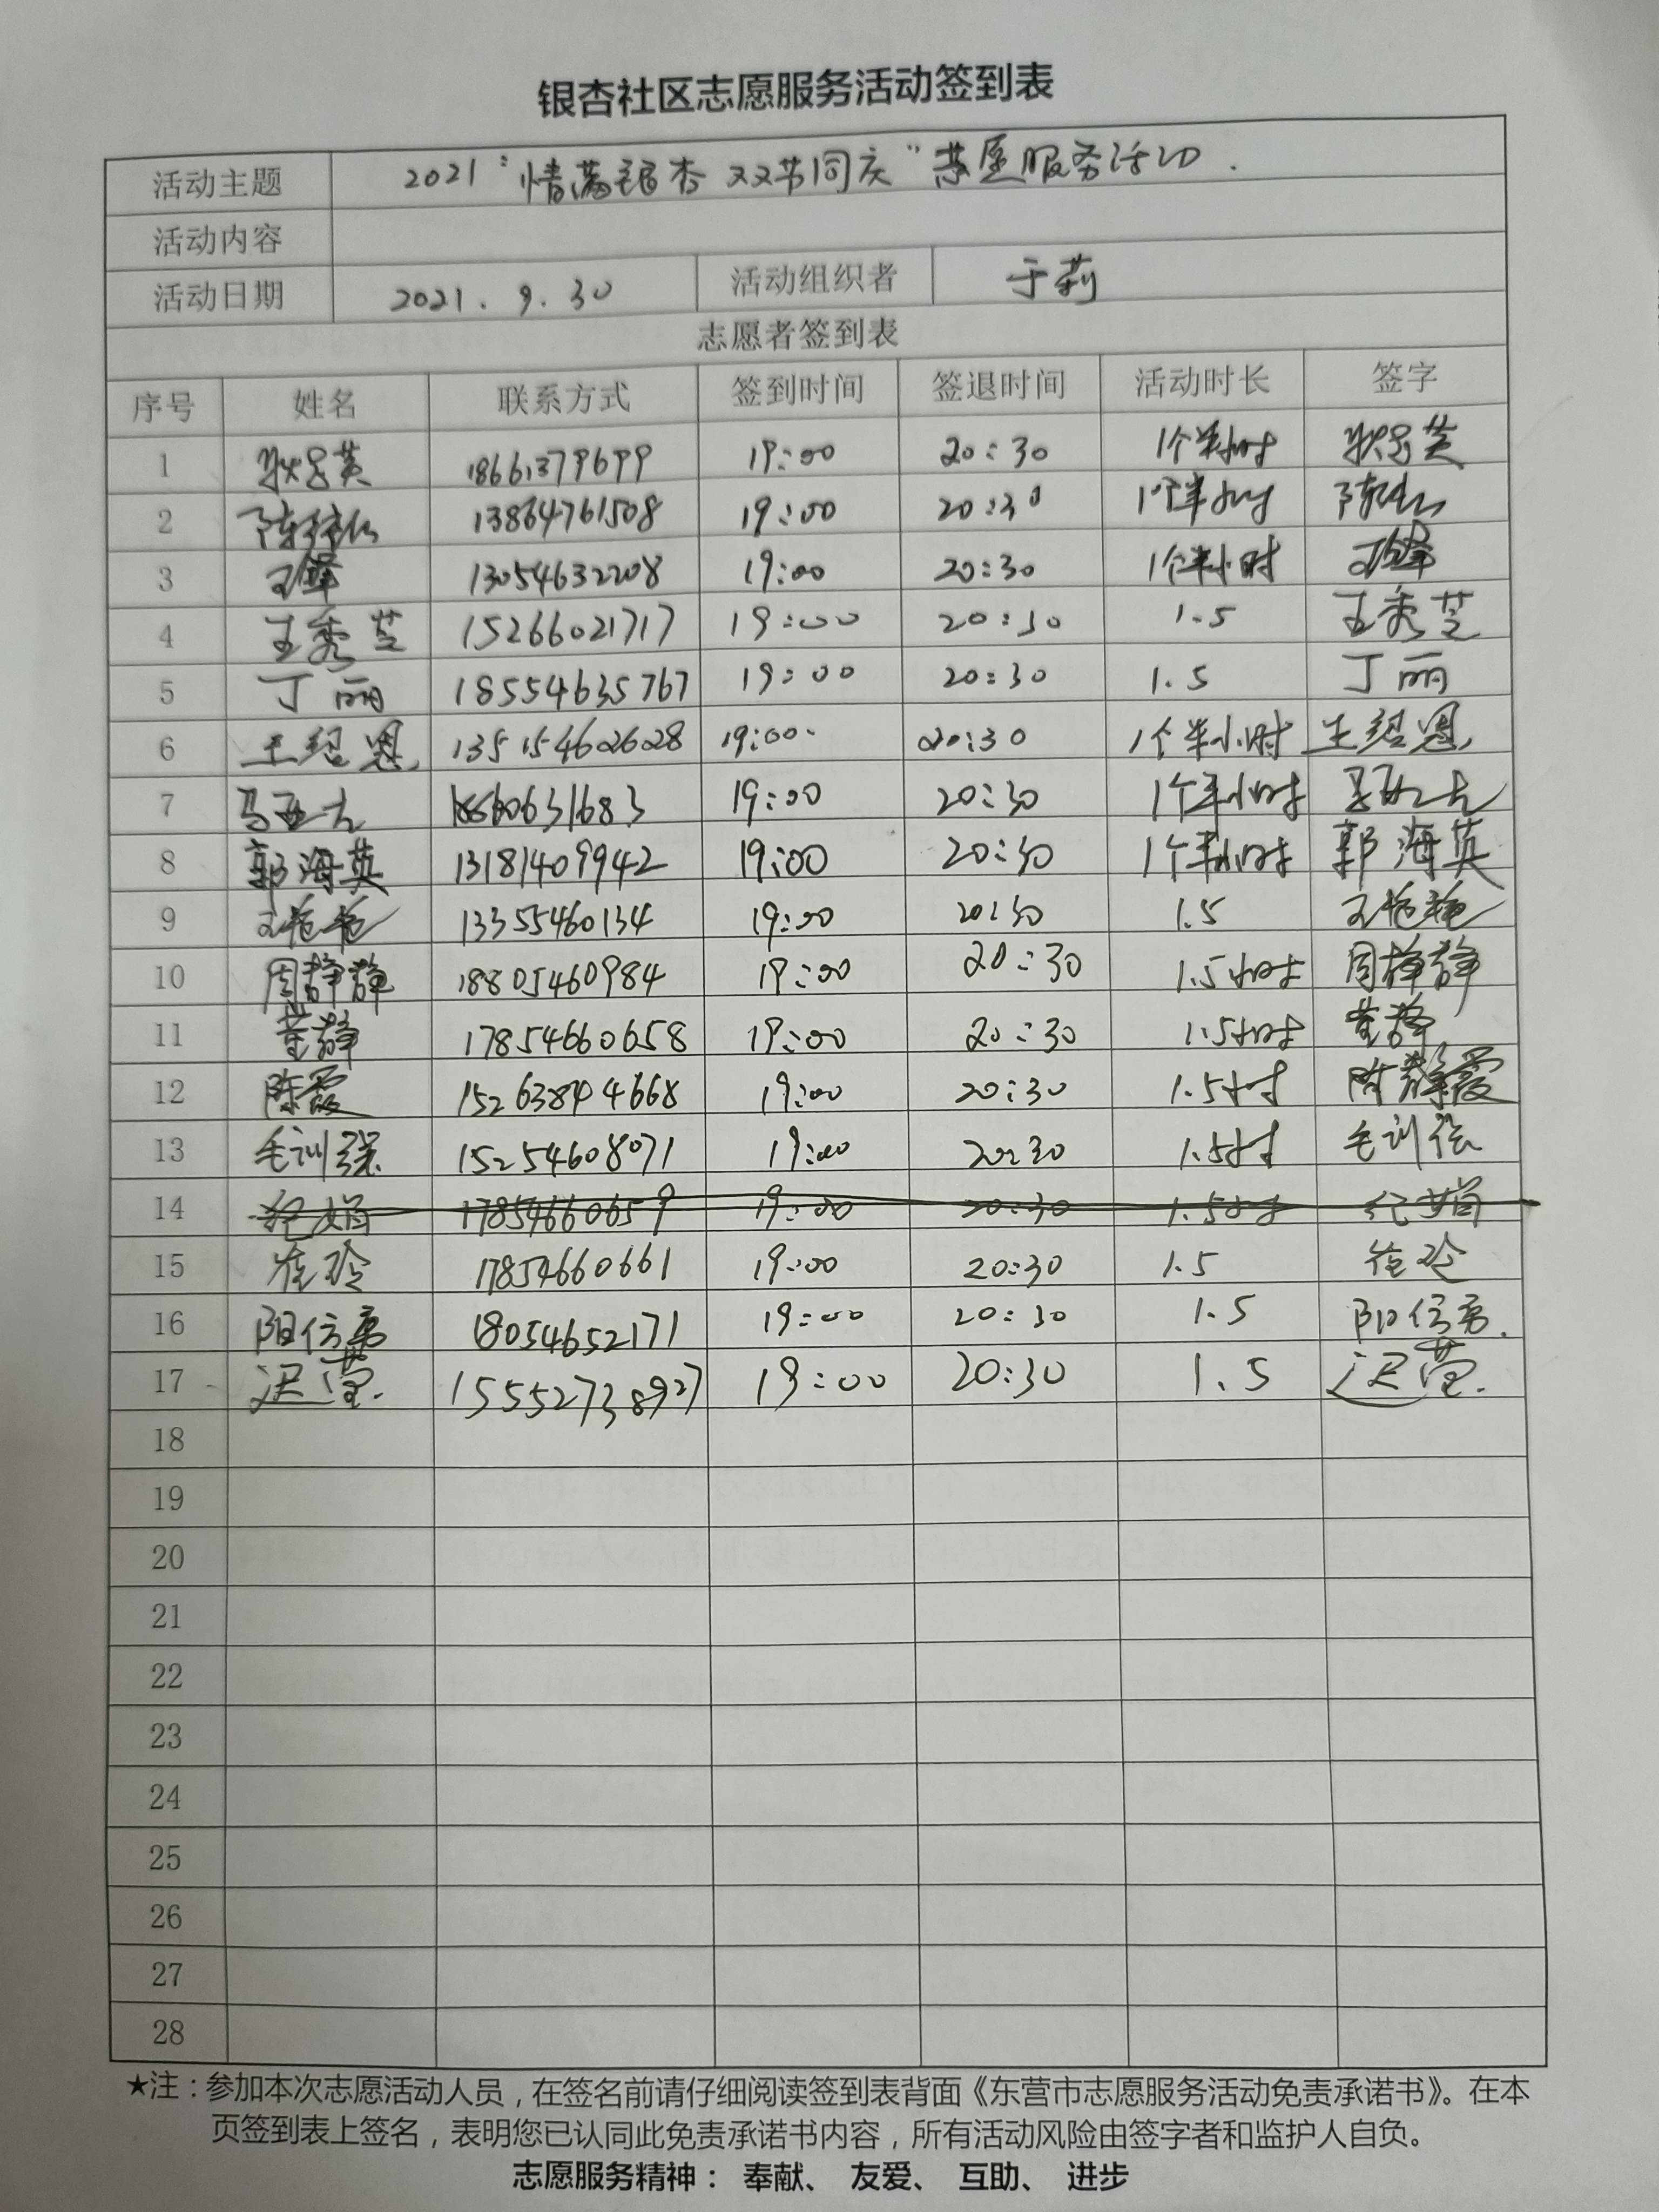 银杏社区志愿服务活动签到表
活动主题 2021“情满银杏 双节同庆”志愿服务活动.
活动内容
活动日期 2021.9.30 活动组织者 于莉
志愿者签到表
序号 姓名 联系方式 签到时间 签退时间 活动时长 签字
1 18661379699 19:00 20:30 1个半小时
2 13864761508 19:00 20:30 1个半小时
3 13054632208 19:00 20:30 1个半小时
4 王秀芝 15266021717 19:00 20:30 1.5 王秀芝
5 丁丽 18554635767 19:00 20:30 1.5 丁丽
6 王绍恩 13515462628 19:00 20:30 1个半小时 王绍恩
7 19:00 20:30 1个半小时
8 郭海英 13181409942 19:00 20:30 1个半小时 郭海英
9 王艳艳 13355460134 19:00 20:30 1.5 王艳艳
10 周静静 18805460984 19:00 20:30 1.5小时 周静静
11 董静 17854660658 19:00 20:30 1.5小时 董静
12 陈霞 19:00 20:30 1.5小时 陈静霞
13 毛训强 15254608071 19:00 20:30 1.5小时 毛训强
14 纪娟 17854660659 19:00 20:30 1.5小时 纪娟
15 崔玲 17854660661 19:00 20:30 1.5 崔玲
16 阳信勇 18054652171 19:00 20:30 1.5 阳信勇.
17 迟莹. 15552738927 19:00 20:30 1.5 迟莹.
18
19
20
21
22
23
24
25
26
27
28
★注：参加本次志愿活动人员，在签名前请仔细阅读签到表背面《东营市志愿服务活动免责承诺书》。在本
页签到表上签名，表明您已认同此免责承诺书内容，所有活动风险由签字者和监护人自负。
志愿服务精神： 奉献、 友爱、 互助、 进步